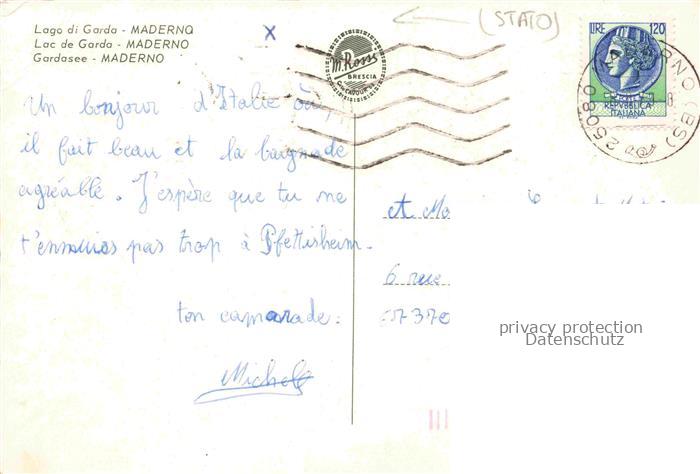 Lago di Garda - MADERNO
Lac de Garda - MADERNO
Gardasee - MADERNO
x
(STATO)
M. Rossi
BRESCIA
LIRE 120
REPVBBLICA
ITALIANA
25080 MADERNO (BS)
Un bonjour d'Italie où,
il fait beau et la baignade
agréable. J'espère que tu ne
t'ennuies pas trop à Pfettisheim.
ton camarade:
Michel
et
6 rue
67370
privacy protection
Datenschutz